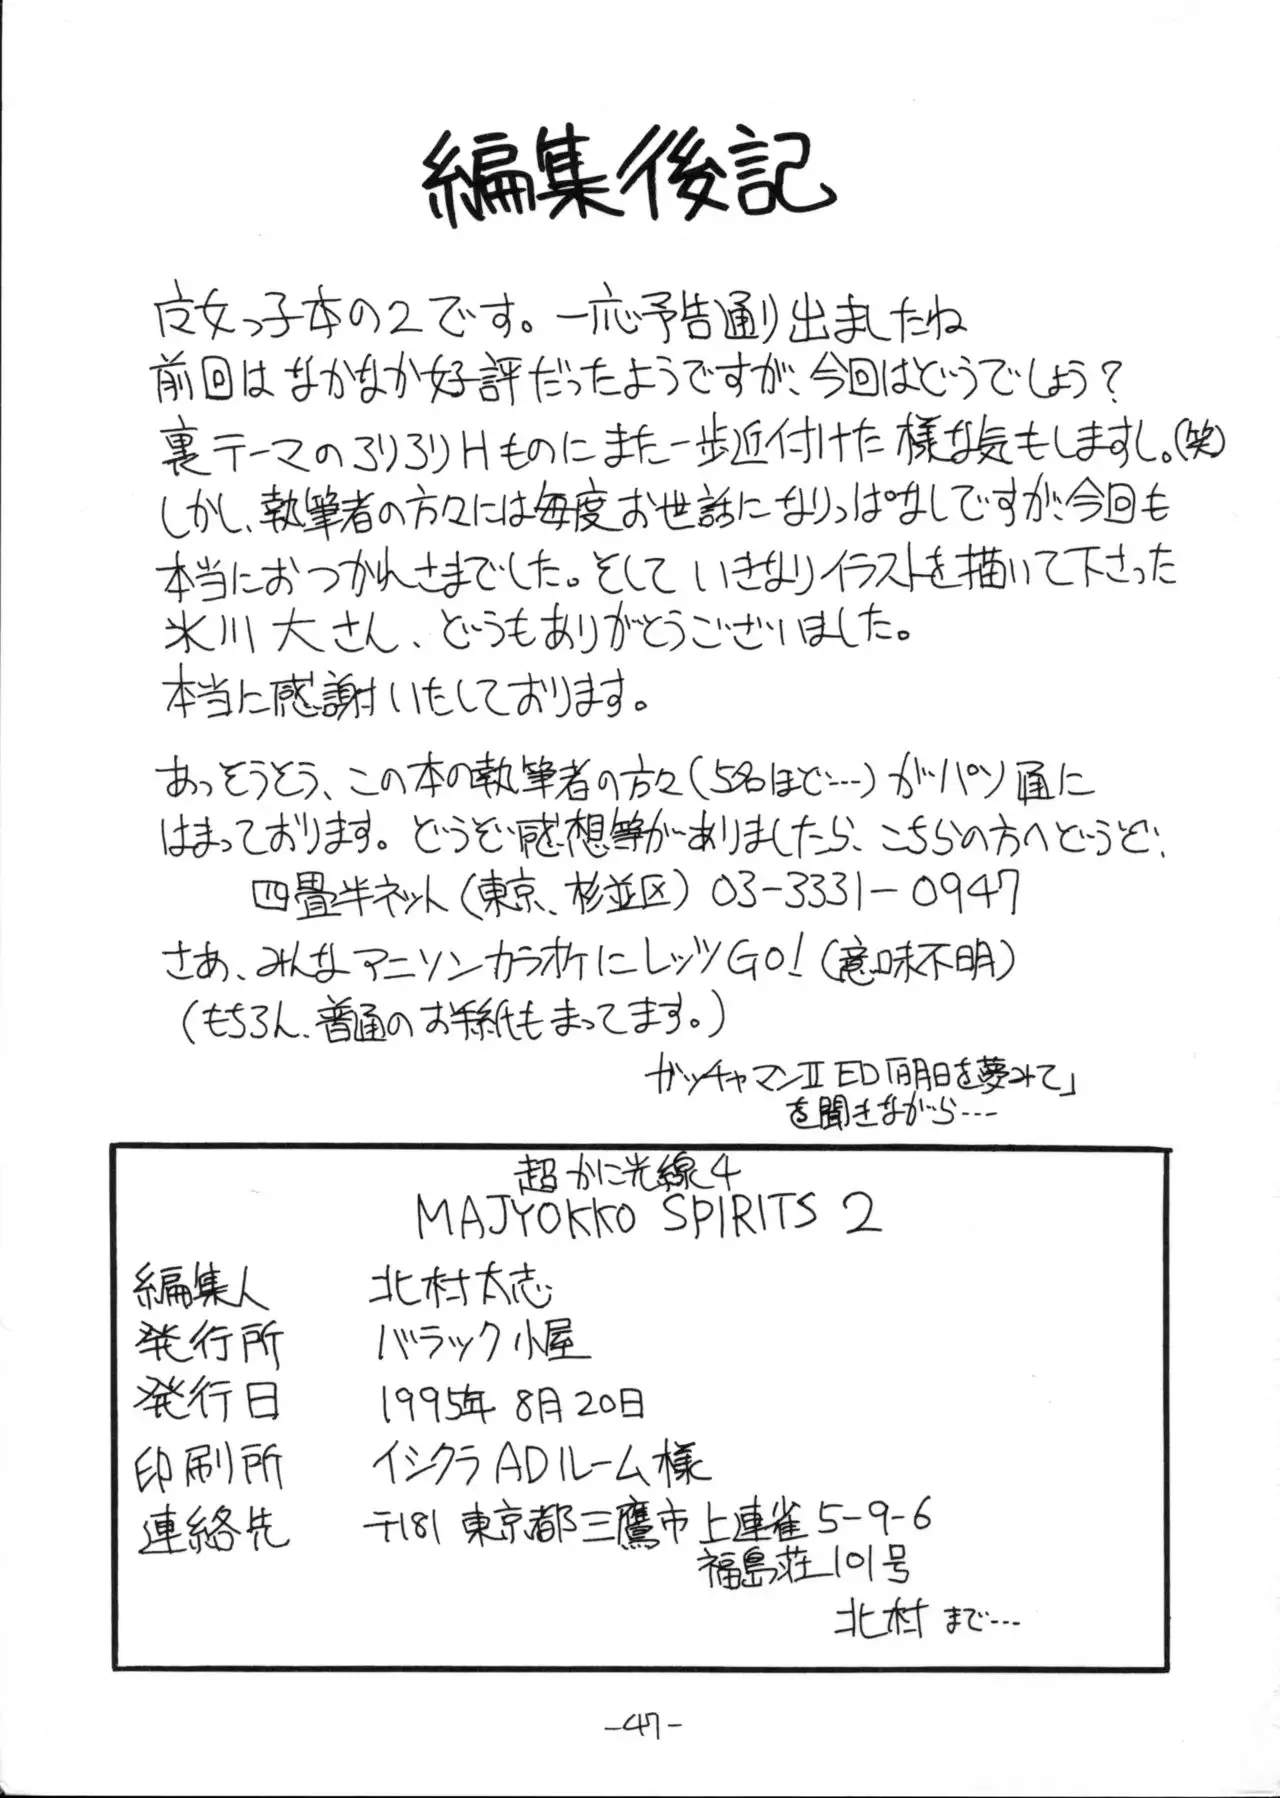 編集後記
魔女っ子本の2です。一応予告通り出ましたね
前回はなかなか好評だったようですが、今回はどうでしょう？
裏テーマのろりろりHものにまた一歩近付けた様な気もしますし。(笑)
しかし、執筆者の方々には毎度お世話になりっぱなしですが、今回も
本当におつかれさまでした。そして いきなりイラストを描いて下さった
氷川大さん、どうもありがとうございました。
本当に感謝いたしております。
あっそうそう、この本の執筆者の方々(5名ほど…)がパソ通に
はまっております。どうぞ感想等がありましたら、こちらの方へどうぞ、
四畳半ネット(東京、杉並区) 03-3331-0947
さあ、みんなアニソンカラオケにレッツGO!(意味不明)
(もちろん、普通のお手紙もまってます。)
ガッチャマンⅡ ED「明日を夢みて」
を聞きながら…
超かに光線4
MAJYOKKO SPIRITS 2
編集人 北村太志
発行所 バラック小屋
発行日 1995年 8月20日
印刷所 イシクラADルーム様
連絡先 〒181 東京都三鷹市上連雀5-9-6
福島荘101号
北村まで…
-47-